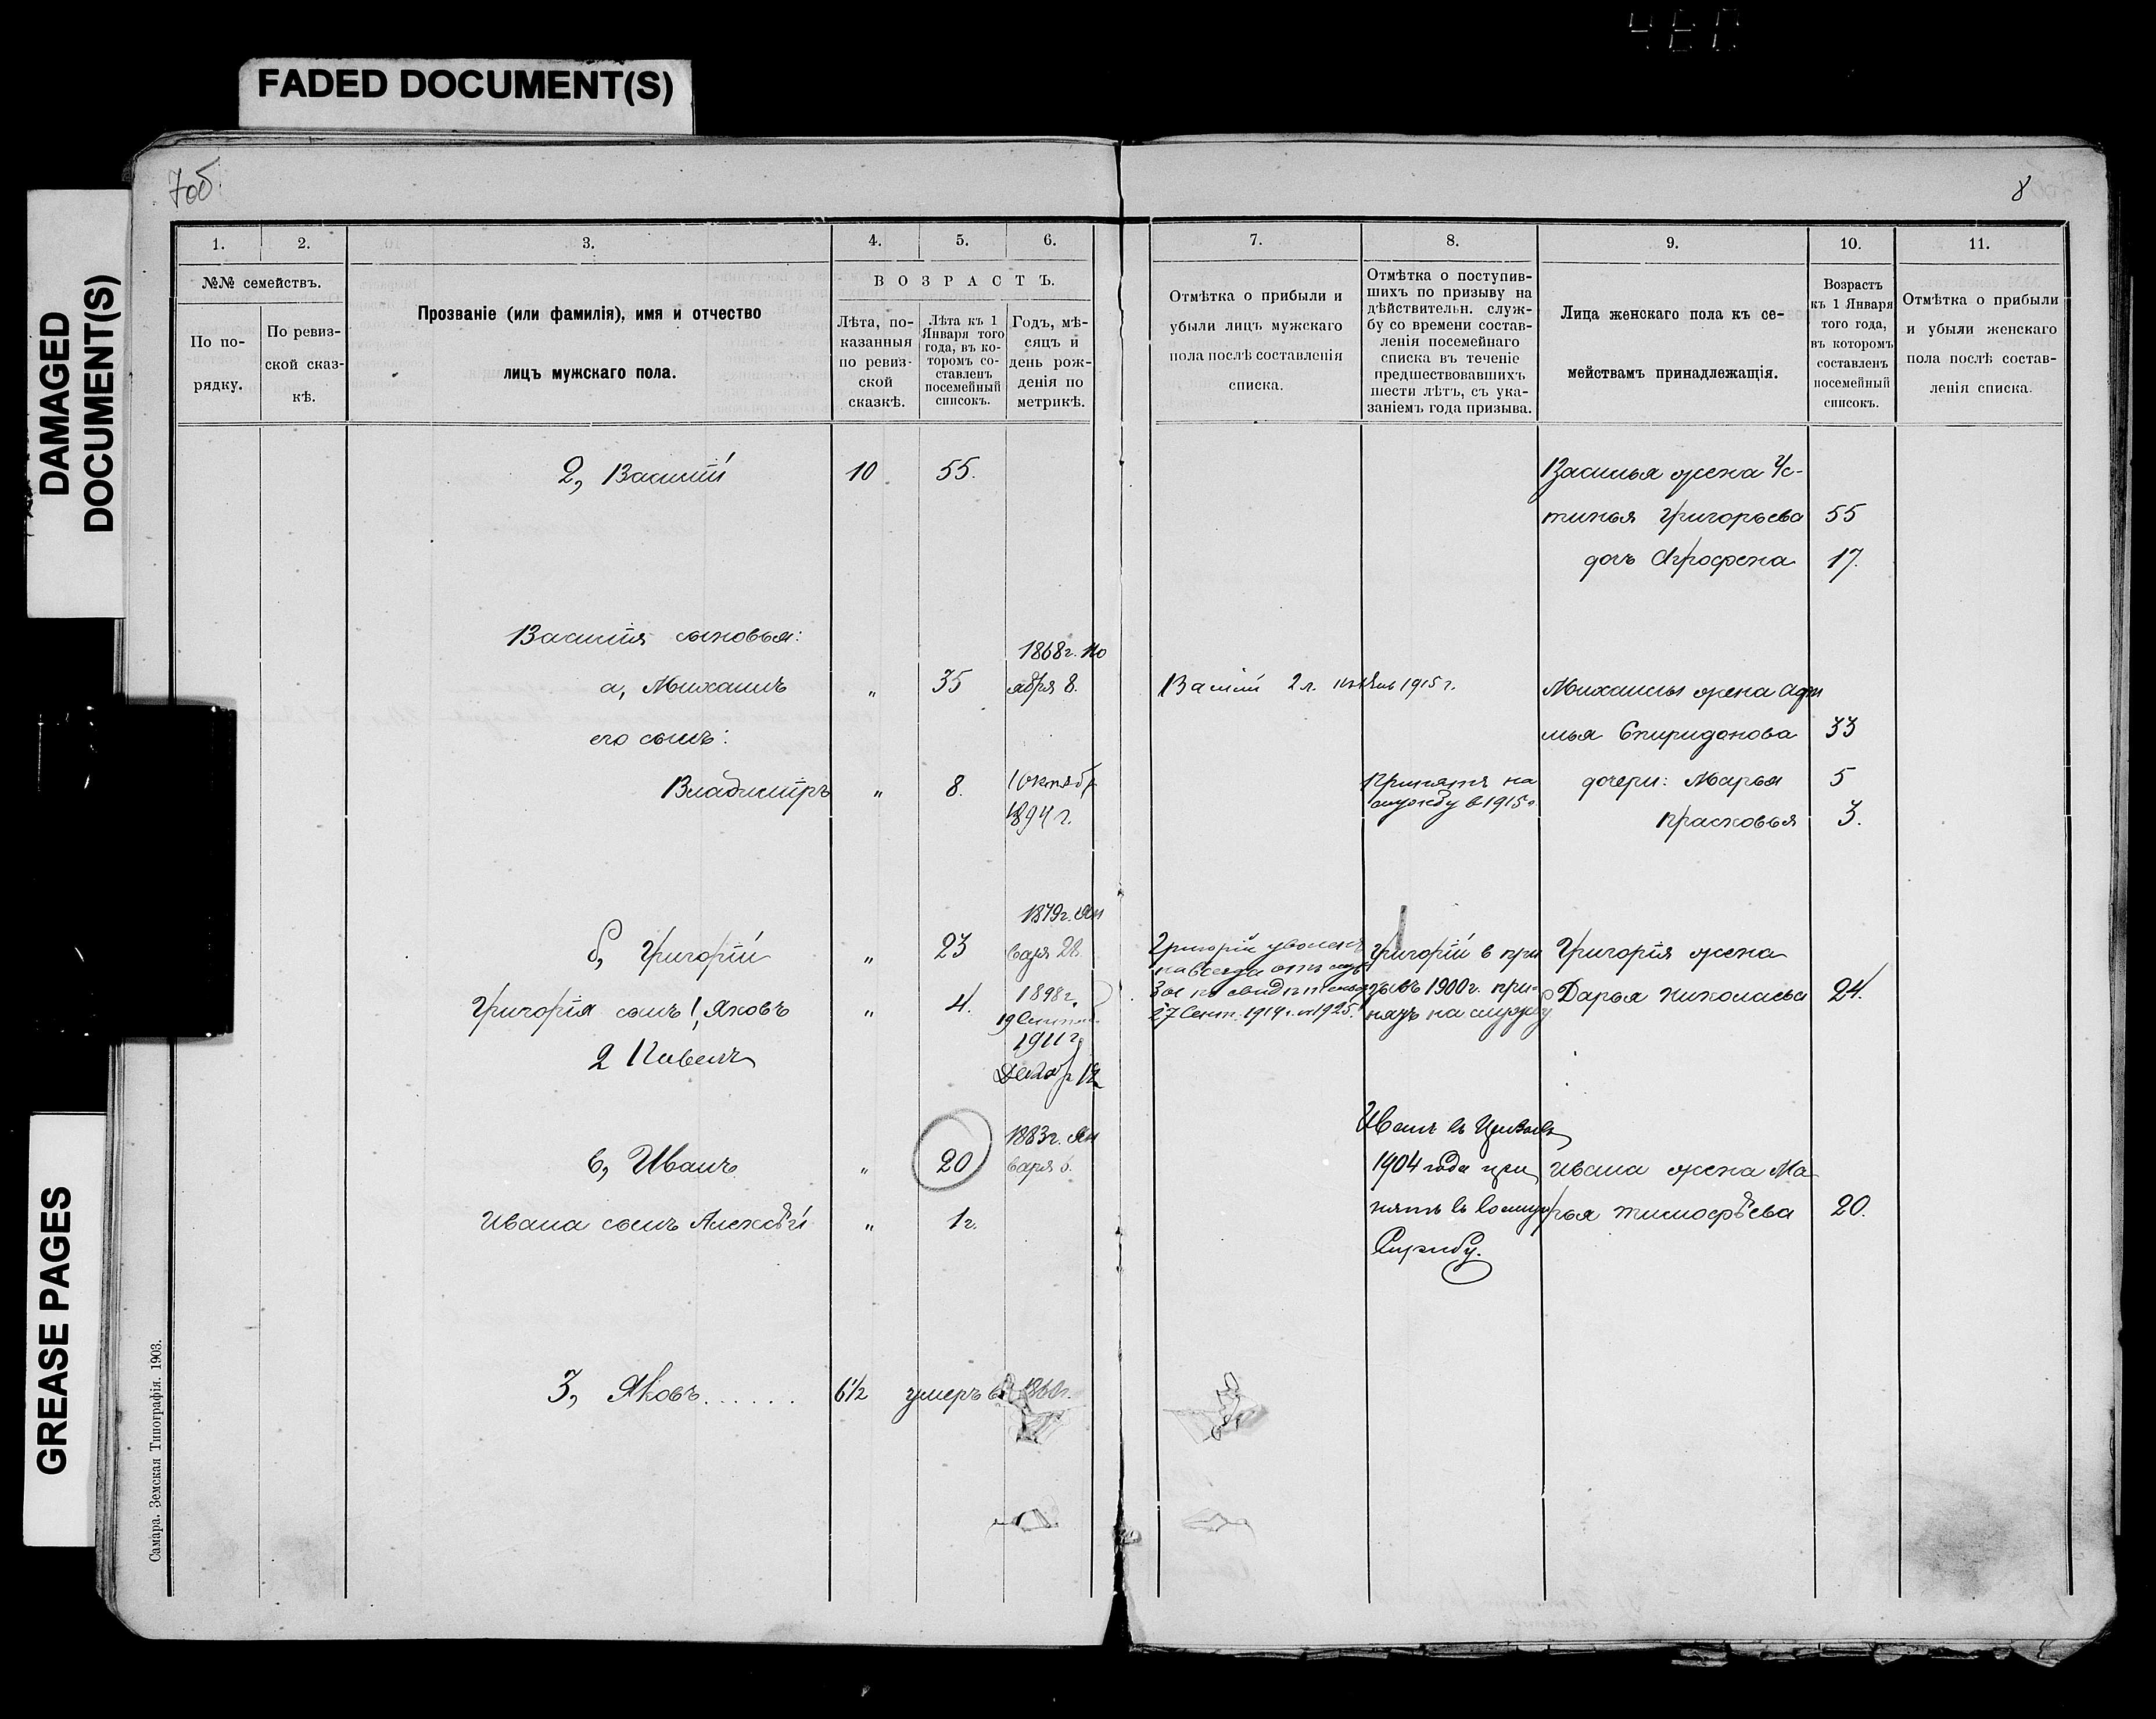 FADED DOCUMENT(S)
DAMAGED
DOCUMENT(S)
GREASE PAGES
7об.
8
1.
2.
3.
4.
5.
6.
7.
8.
9.
10.
11.
№№ семействъ.
По по-
рядку.
По ревиз-
ской сказ-
кѣ.
Прозваніе (или фамилія), имя и отчество
лицъ мужскаго пола.
ВОЗРАСТЪ.
Лѣта, по-
казанныя
по ревиз-
ской
сказкѣ.
Лѣта къ 1
Января того
года, въ ко-
торомъ со-
ставленъ
посемейный
списокъ.
Годъ, мѣ-
сяцъ и
день рож-
денія по
метрикѣ.
Отмѣтка о прибыли и
убыли лицъ мужскаго
пола послѣ составленія
списка.
Отмѣтка о поступив-
шихъ по призыву на
дѣйствительн. служ-
бу со времени состав-
ленія посемейнаго
списка въ теченіе
предшествовавшихъ
шести лѣтъ, съ ука-
заніемъ года призыва.
Лица женскаго пола къ се-
мействамъ принадлежащія.
Возрастъ
къ 1 Января
того года,
въ которомъ
составленъ
посемейный
списокъ.
Отмѣтка о прибыли
и убыли женскаго
пола послѣ состав-
ленія списка.
2, Василій 10 55.
Василья жена Ус-
тинья Григорьева 55
дочь Агрофена 17.
Василія сыновья:
1868г. Но
а, Михаилъ " 35 ября 8.
2 л. 1915 г.
Михаилы жена
его сынъ:
Спиридонова 33
Владиміръ " 8. 1 Октяб
1894 г.
Принятъ на
службу в 1915г
дочери: Марья 5
Прасковья 3.
1879г. Ян
б, Григорій " 23 варя 28.
Григорій уволенъ
навсегда отъ
27 Сент. 1914г. 1925.
Григорій в при
зывъ 1900г. при-
нятъ на службу
Григорія жена
Дарья Николаева 24.
Григорія сынъ 1, Яковъ " 4. 1898г.
19
2 Павелъ
1911г
Декабр 12
1883г. Ян
в, Иванъ " 20 варя 6.
Иванъ въ Призывъ
1904 года при
нятъ въ
Службу.
Ивана жена Ма
рья Тимофѣева 20.
Ивана сынъ Алексѣй " 1г.
3, Яковъ...... 6½ умеръ въ 1860г.
Самара. Земская Типографія. 1903.